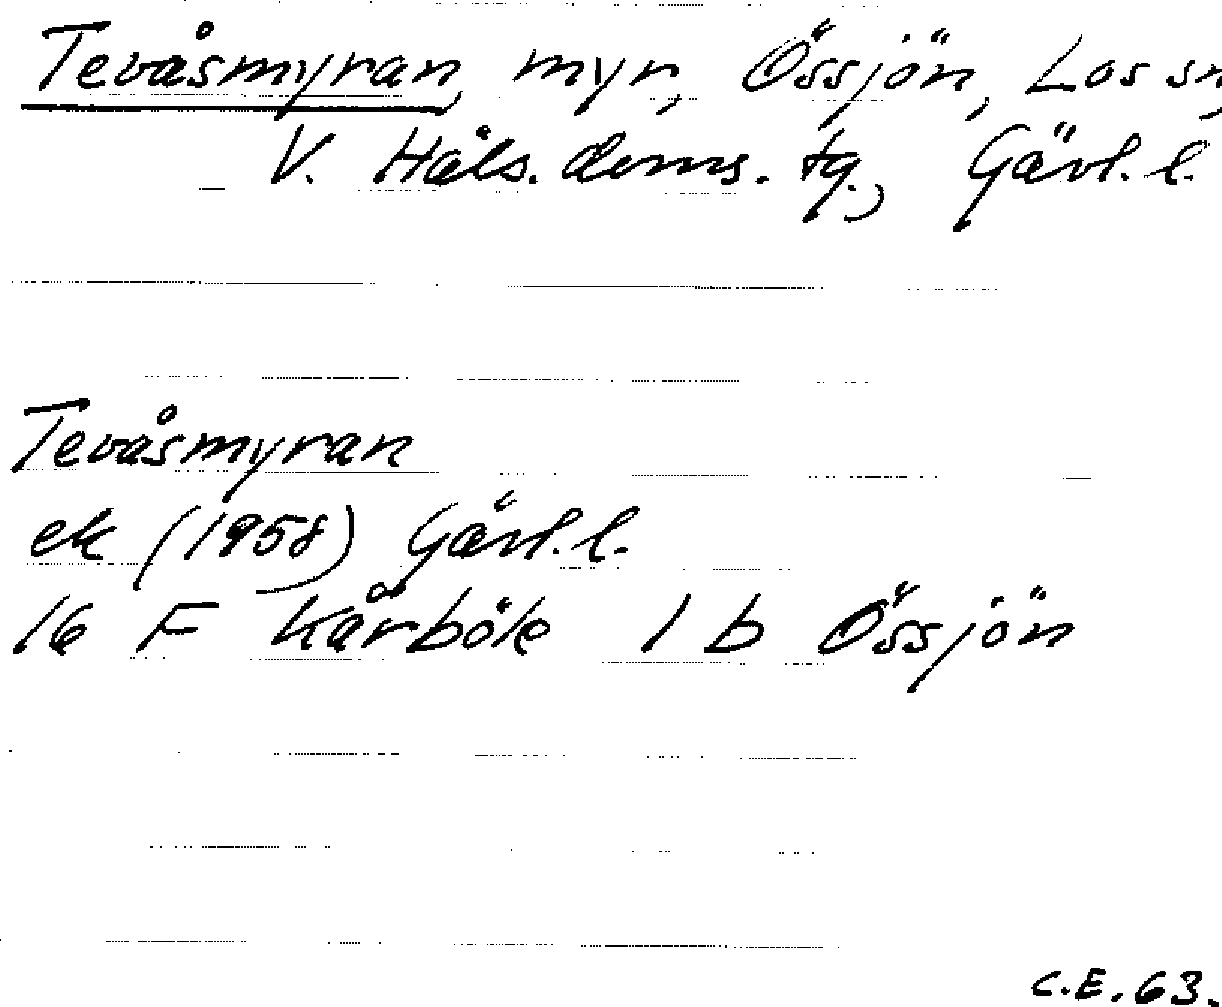 Tevåsmyran, myr, Össjön, Los sn,
V. Häls. doms. tg., Gävl. l.
Tevåsmyran
ek (1958) Gävl. l.
16 F Kårböle 1 b Össjön
C.E. 63.